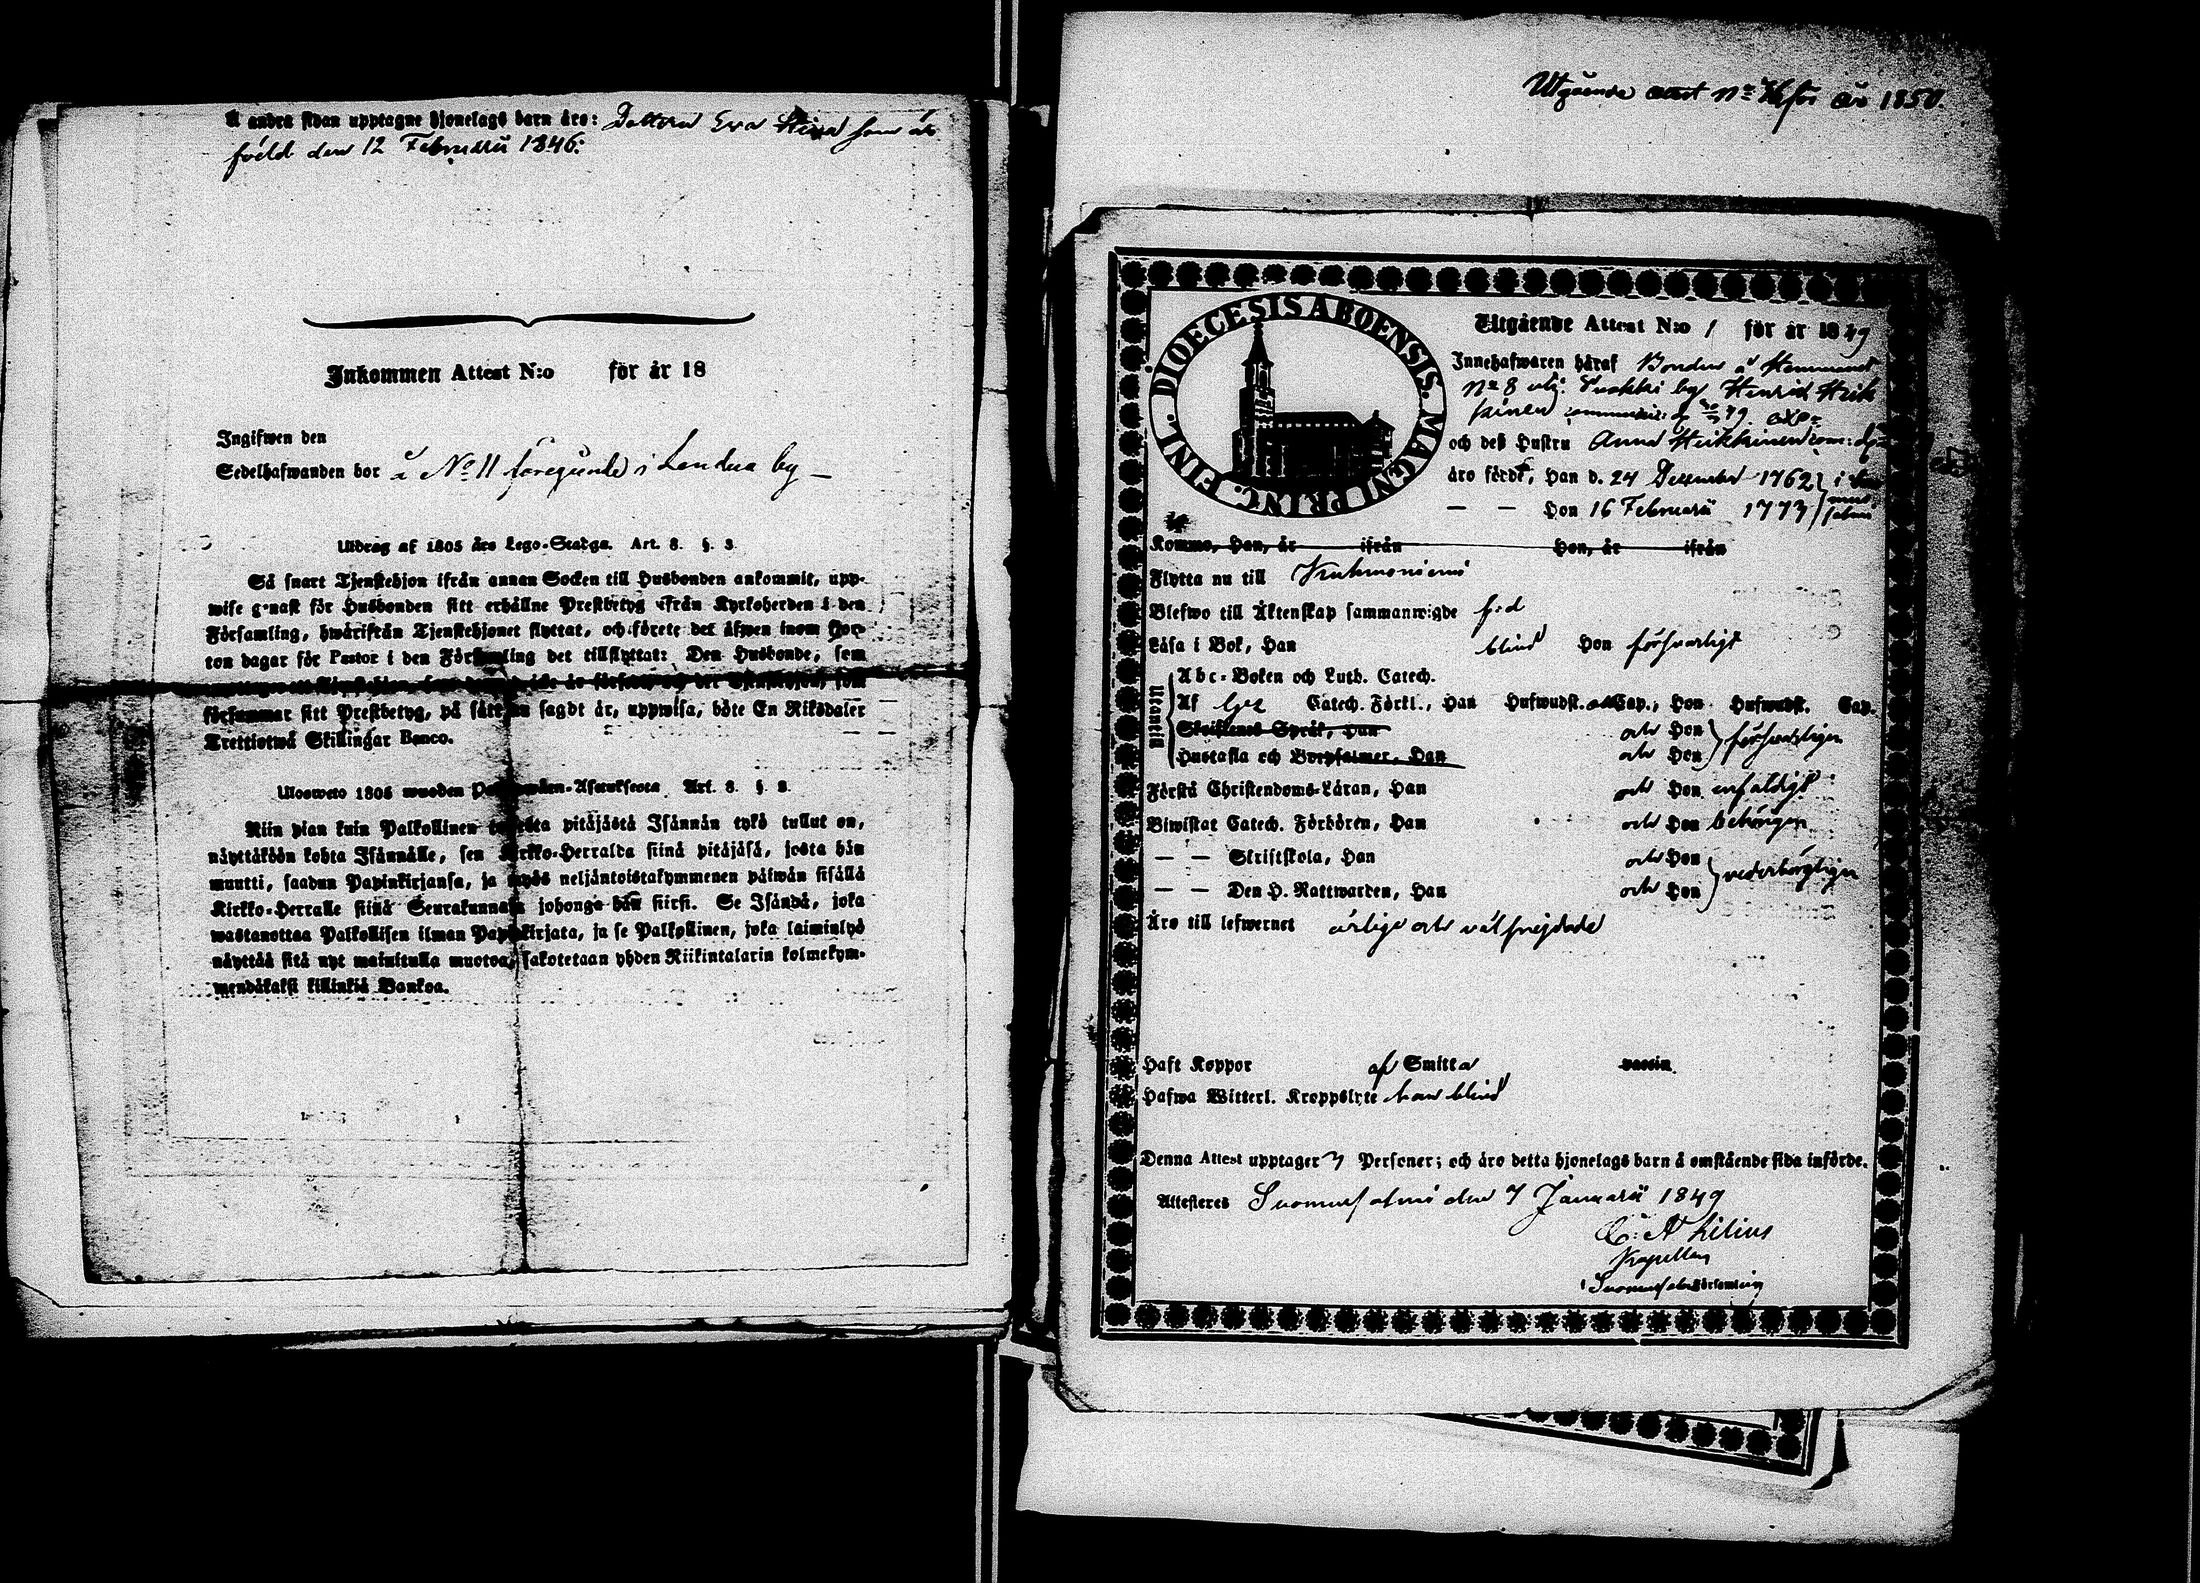 Å andra sidan upptagne hjonelags barn äro: Dottern Eva Stina som är
född den 12 Februarii 1846:
Inkommen Attest N:o för år 18
Ingifwen den
Sedelhafwanden bor å No 11 i by
Utdrag af 1805 års Lego-Stadga. Art. 8. §. 3
Så snart Tjenstehjon ifrån annan Socken till Husbonden ankommit, upp-
wise genast för Husbonden sitt erhållne Prestbetyg ifrån Kyrkoherden i den
Församling, hwarifrån Tjenstehjonet flyttat, och förete det äfwen inom fjor-
ton dagar för Pastor i den Församling det tillflyttat: Den Husbonde, som
försummar sitt Prestbetyg, på sätt nu sagdt är, uppwisa, böte En Riksdaler
Trettiotwå Skillingar Banco.
Ulosweto 1805 wuoden Art. 8. §. 3.
Niin pian kuin Palkollinen toisesta pitäjästä Isännän tykö tullut on,
näyttäköön kohta Isännälle, sen Kirkko-Herralda siinä pitäjäsä, josta hän
muutti, saadun Papinkirjansa, ja myös neljäntoistakymmenen päiwän sisällä
Kirkko-Herralle siinä Seurakunnasa johonga hän siirsi. Se Isändä, joka
wastanottaa Palkollisen ilman Papinkirjata, ja se Palkollinen, joka laiminlyö
näyttää sitä nyt mainitulla muotoa, sakotetaan yhden Riikintalarin kolmekym-
mendäkaksi killinkiä Bankoa.
Utgående attest No för år 1850.
DIOECESIS ABOENSIS. MAGNI PRINC. FINL.
Utgående Attest N:o 1 för år 1849
Innehafwaren häraf Bonden å Hemmanet
No 8 by Henrik Heik
kinen 49
och des Hustru Anna Heikkinen
äro födde, Han d. 24 December 1762 i Suo
— — Hon 16 Februarii 1773 mus
salmi
Kommo, Han, år ifrån Hon, år ifrån
Flytta nu till Kuhmoniemi
Blefwo till Äktenskap sammanwigde
Läsa i Bok, Han blind Hon försvarligt
Utantill
Abc-Boken och Luth. Catech.
Af Catech. Förkl., Han Hufwudst. Cap., Hon Hufwudst. Cap.
Skriftenes Språk, Han och Hon försvarligen
Hustafla och Botpsalmer, Han och Hon
Förstå Christendoms-Läran, Han och Hon enfaldigt
Biwistat Catech. Förhören, Han och Hon behörigen
— — Skriftskola, Han och Hon vederbörligen
— — Den H. Nattwarden, Han och Hon
Äro till lefwernet ärlige och välfrejdade
Haft Koppor af Smitta vaccin.
Hafwa Witterl. Kroppslyte han blind
Denna Attest upptager 3 Personer; och äro detta hjonelags barn å omstående sida införde.
Attesteres Suomussalmi den 7 Januarii 1849
C: N Lilius
Kapellan
i Suomussalmi församling